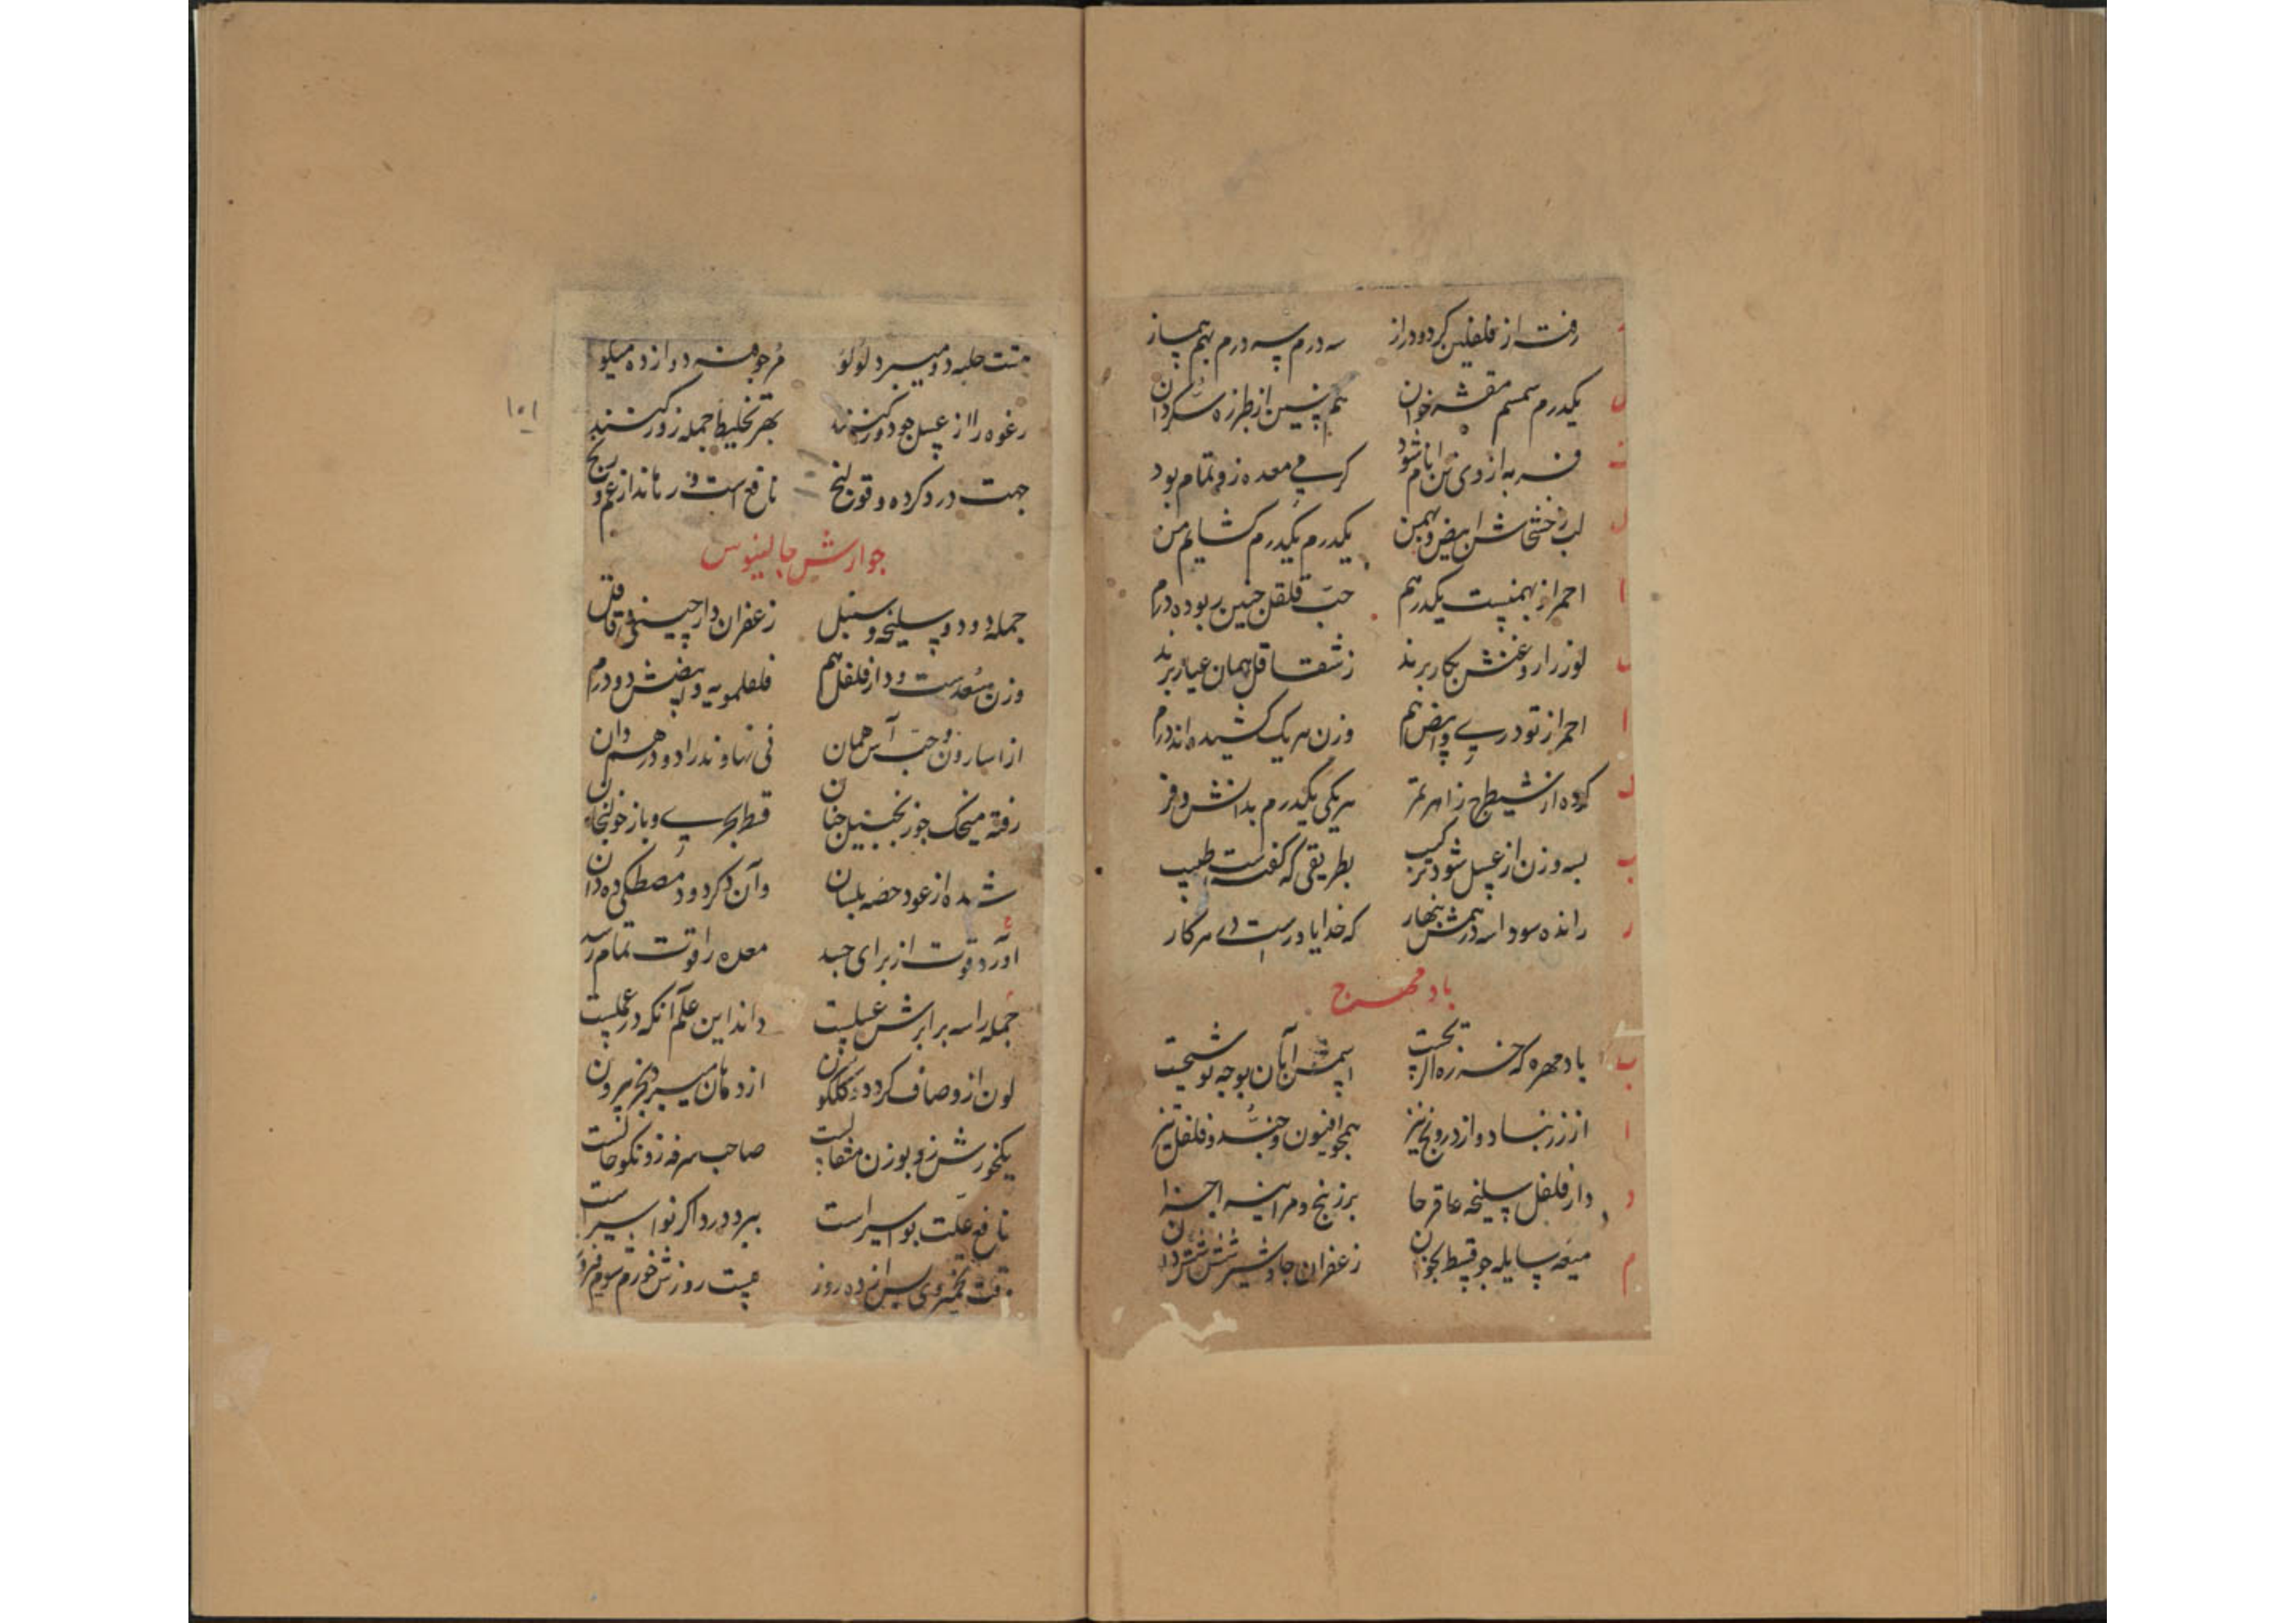 رفته از فلفلین گرد و دراز سه درم سه درم بهم پساز
یکدرم سمسم مقشر خوان هم چنین از طبرزه سکردان
فربه از وی تن انام شود گرمی معده زو تمام بود
لب خشخاش ابیض و بهمن یکدرم یکدرم کشایم من
احمر از بهمنست یکدرهم حب قلقل چنین ربوده درم
لوز را روغنش بکار برند ز شقاقل همان عیار برند
احمر از تودری و ابیض هم وزن هر یک کشیده اند درم
کرده از شیطرج زاهر تمر هریکی یکدرم بدانش و فر
سه وزن از عسل شود ترکیب بطریقی که گفته است طبیب
رانده سودا سه درهمش بنهار که خدایا درست دی هر کار
باد مهرج
باد مهره که خسرو از
از زرنباد و از درونج نیز همچو افیون و جند و فلفل تیز
دار فلفل سلیخه عاقرقرحا برزنج و مر اینه اجزا
میعه سایله جو قسط بخوان زعفران جاوشیر شش شش دان
حلبه دو میبرد لولو مر جو قنه دوازده میکو
رغوه را از عسل جو دور کنند بهر تخلیط جمله زور کنند
جهت درد کرده و قولنج نافع است و رهاند از غم و رنج
۱۰۱
جوارش جالینوس
جمله دو دو سلیخه و سنبل زعفران دارچینی و قاقل
وزن سعدست و دارفلفل هم فلفلمویه و ابیضش دو درم
از اسارون و حب آس همان نی نهاوند را دو درهم دان
رفته میخک جو زنجبیل جنان قسط بحری و باز خولنجان
شده از عود حصه بلسان وآن دگر دود مصطکی ده دان
آورد قوت از برای جسد معده را قوت تمام رسد
جمله را سه برابرش عسلست داند این علم آنکه در عملست
لون از و صاف گردد و گلگون از دهان میبرد بخر بیرون
یکخورش زو بوزن مثقالست صاحب سرفه زو نکو حالست
نافع علت بواسیر است ببرد درد اگر نواسیر است
وقت تخمیر وی پس از ده روز بیست روزش خورم سوم فیروز